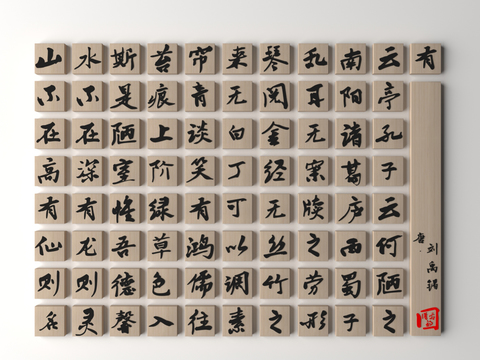 山不在高有仙则名
水不在深有龙则灵
斯是陋室惟吾德馨
苔痕上阶绿草色入
帘青谈笑有鸿儒往
来无白丁可以调素
琴阅金经无丝竹之
乱耳无案牍之劳形
南阳诸葛庐西蜀子
云亭孔子云何陋之
有
唐·刘禹锡